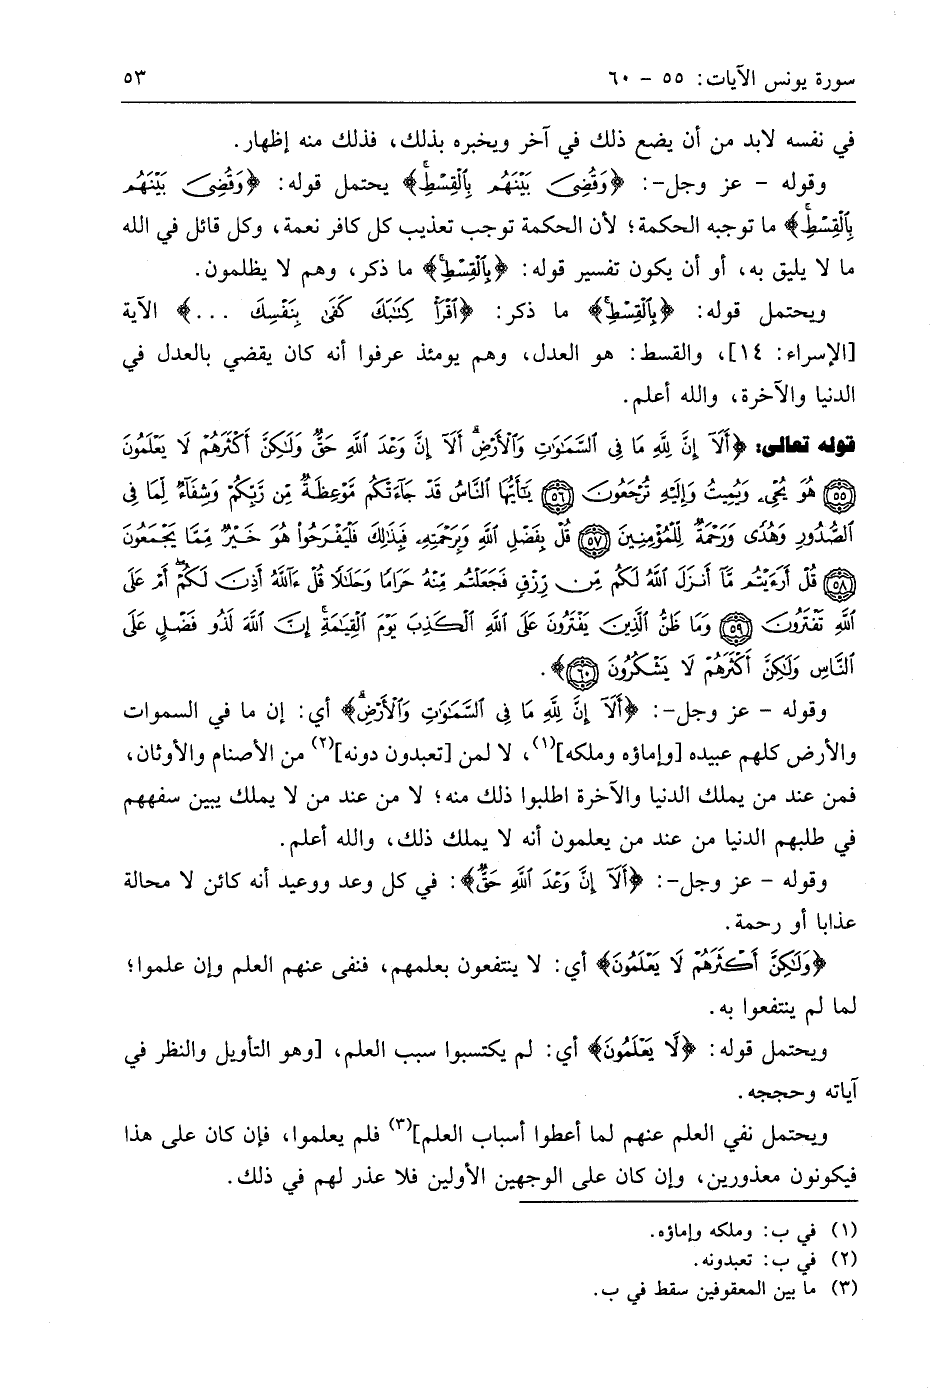 سورة يونس الآيات: ٥٥ - ٦٠ ٥٣
في نفسه لابد من أن يضع ذلك في آخر ويخبره بذلك، فذلك منه إظهار.
وقوله - عز وجل-: ﴿وَقُضِىَ بَيْنَهُم بِٱلْقِسْطِۚ﴾ يحتمل قوله: ﴿وَقُضِىَ بَيْنَهُم
بِٱلْقِسْطِۚ﴾ ما توجبه الحكمة؛ لأن الحكمة توجب تعذيب كل كافر نعمة، وكل قائل في الله
ما لا يليق به، أو أن يكون تفسير قوله: ﴿بِٱلْقِسْطِۚ﴾ ما ذكر، وهم لا يظلمون.
ويحتمل قوله: ﴿بِٱلْقِسْطِۚ﴾ ما ذكر: ﴿ٱقْرَأْ كِتَٰبَكَ كَفَىٰ بِنَفْسِكَ ...﴾ الآية
[الإسراء: ١٤]، والقسط: هو العدل، وهم يومئذ عرفوا أنه كان يقضي بالعدل في
الدنيا والآخرة، والله أعلم.
قوله تعالى: ﴿أَلَآ إِنَّ لِلَّهِ مَا فِى ٱلسَّمَٰوَٰتِ وَٱلْأَرْضِۗ أَلَآ إِنَّ وَعْدَ ٱللَّهِ حَقٌّ وَلَٰكِنَّ أَكْثَرَهُمْ لَا يَعْلَمُونَ
(٥٥) هُوَ يُحْىِۦ وَيُمِيتُ وَإِلَيْهِ تُرْجَعُونَ (٥٦) يَٰٓأَيُّهَا ٱلنَّاسُ قَدْ جَآءَتْكُم مَّوْعِظَةٌ مِّن رَّبِّكُمْ وَشِفَآءٌ لِّمَا فِى
ٱلصُّدُورِ وَهُدًى وَرَحْمَةٌ لِّلْمُؤْمِنِينَ (٥٧) قُلْ بِفَضْلِ ٱللَّهِ وَبِرَحْمَتِهِۦ فَبِذَٰلِكَ فَلْيَفْرَحُوا۟ هُوَ خَيْرٌ مِّمَّا يَجْمَعُونَ
(٥٨) قُلْ أَرَءَيْتُم مَّآ أَنزَلَ ٱللَّهُ لَكُم مِّن رِّزْقٍ فَجَعَلْتُم مِّنْهُ حَرَامًا وَحَلَٰلًا قُلْ ءَآللَّهُ أَذِنَ لَكُمْۖ أَمْ عَلَى
ٱللَّهِ تَفْتَرُونَ (٥٩) وَمَا ظَنُّ ٱلَّذِينَ يَفْتَرُونَ عَلَى ٱللَّهِ ٱلْكَذِبَ يَوْمَ ٱلْقِيَٰمَةِۗ إِنَّ ٱللَّهَ لَذُو فَضْلٍ عَلَى
ٱلنَّاسِ وَلَٰكِنَّ أَكْثَرَهُمْ لَا يَشْكُرُونَ (٦٠)﴾.
وقوله - عز وجل-: ﴿أَلَآ إِنَّ لِلَّهِ مَا فِى ٱلسَّمَٰوَٰتِ وَٱلْأَرْضِۗ﴾ أي: إن ما في السموات
والأرض كلهم عبيده [وإماؤه وملكه](١)، لا لمن [تعبدون دونه](٢) من الأصنام والأوثان،
فمن عند من يملك الدنيا والآخرة اطلبوا ذلك منه؛ لا من عند من لا يملك يبين سفههم
في طلبهم الدنيا من عند من يعلمون أنه لا يملك ذلك، والله أعلم.
وقوله - عز وجل-: ﴿أَلَآ إِنَّ وَعْدَ ٱللَّهِ حَقٌّ﴾: في كل وعد ووعيد أنه كائن لا محالة
عذابا أو رحمة.
﴿وَلَٰكِنَّ أَكْثَرَهُمْ لَا يَعْلَمُونَ﴾ أي: لا ينتفعون بعلمهم، فنفى عنهم العلم وإن علموا؛
لما لم ينتفعوا به.
ويحتمل قوله: ﴿لَا يَعْلَمُونَ﴾ أي: لم يكتسبوا سبب العلم، [وهو التأويل والنظر في
آياته وحججه.
ويحتمل نفي العلم عنهم لما أعطوا أسباب العلم](٣) فلم يعلموا، فإن كان على هذا
فيكونون معذورين، وإن كان على الوجهين الأولين فلا عذر لهم في ذلك.
(١) في ب: وملكه وإماؤه.
(٢) في ب: تعبدونه.
(٣) ما بين المعقوفين سقط في ب.